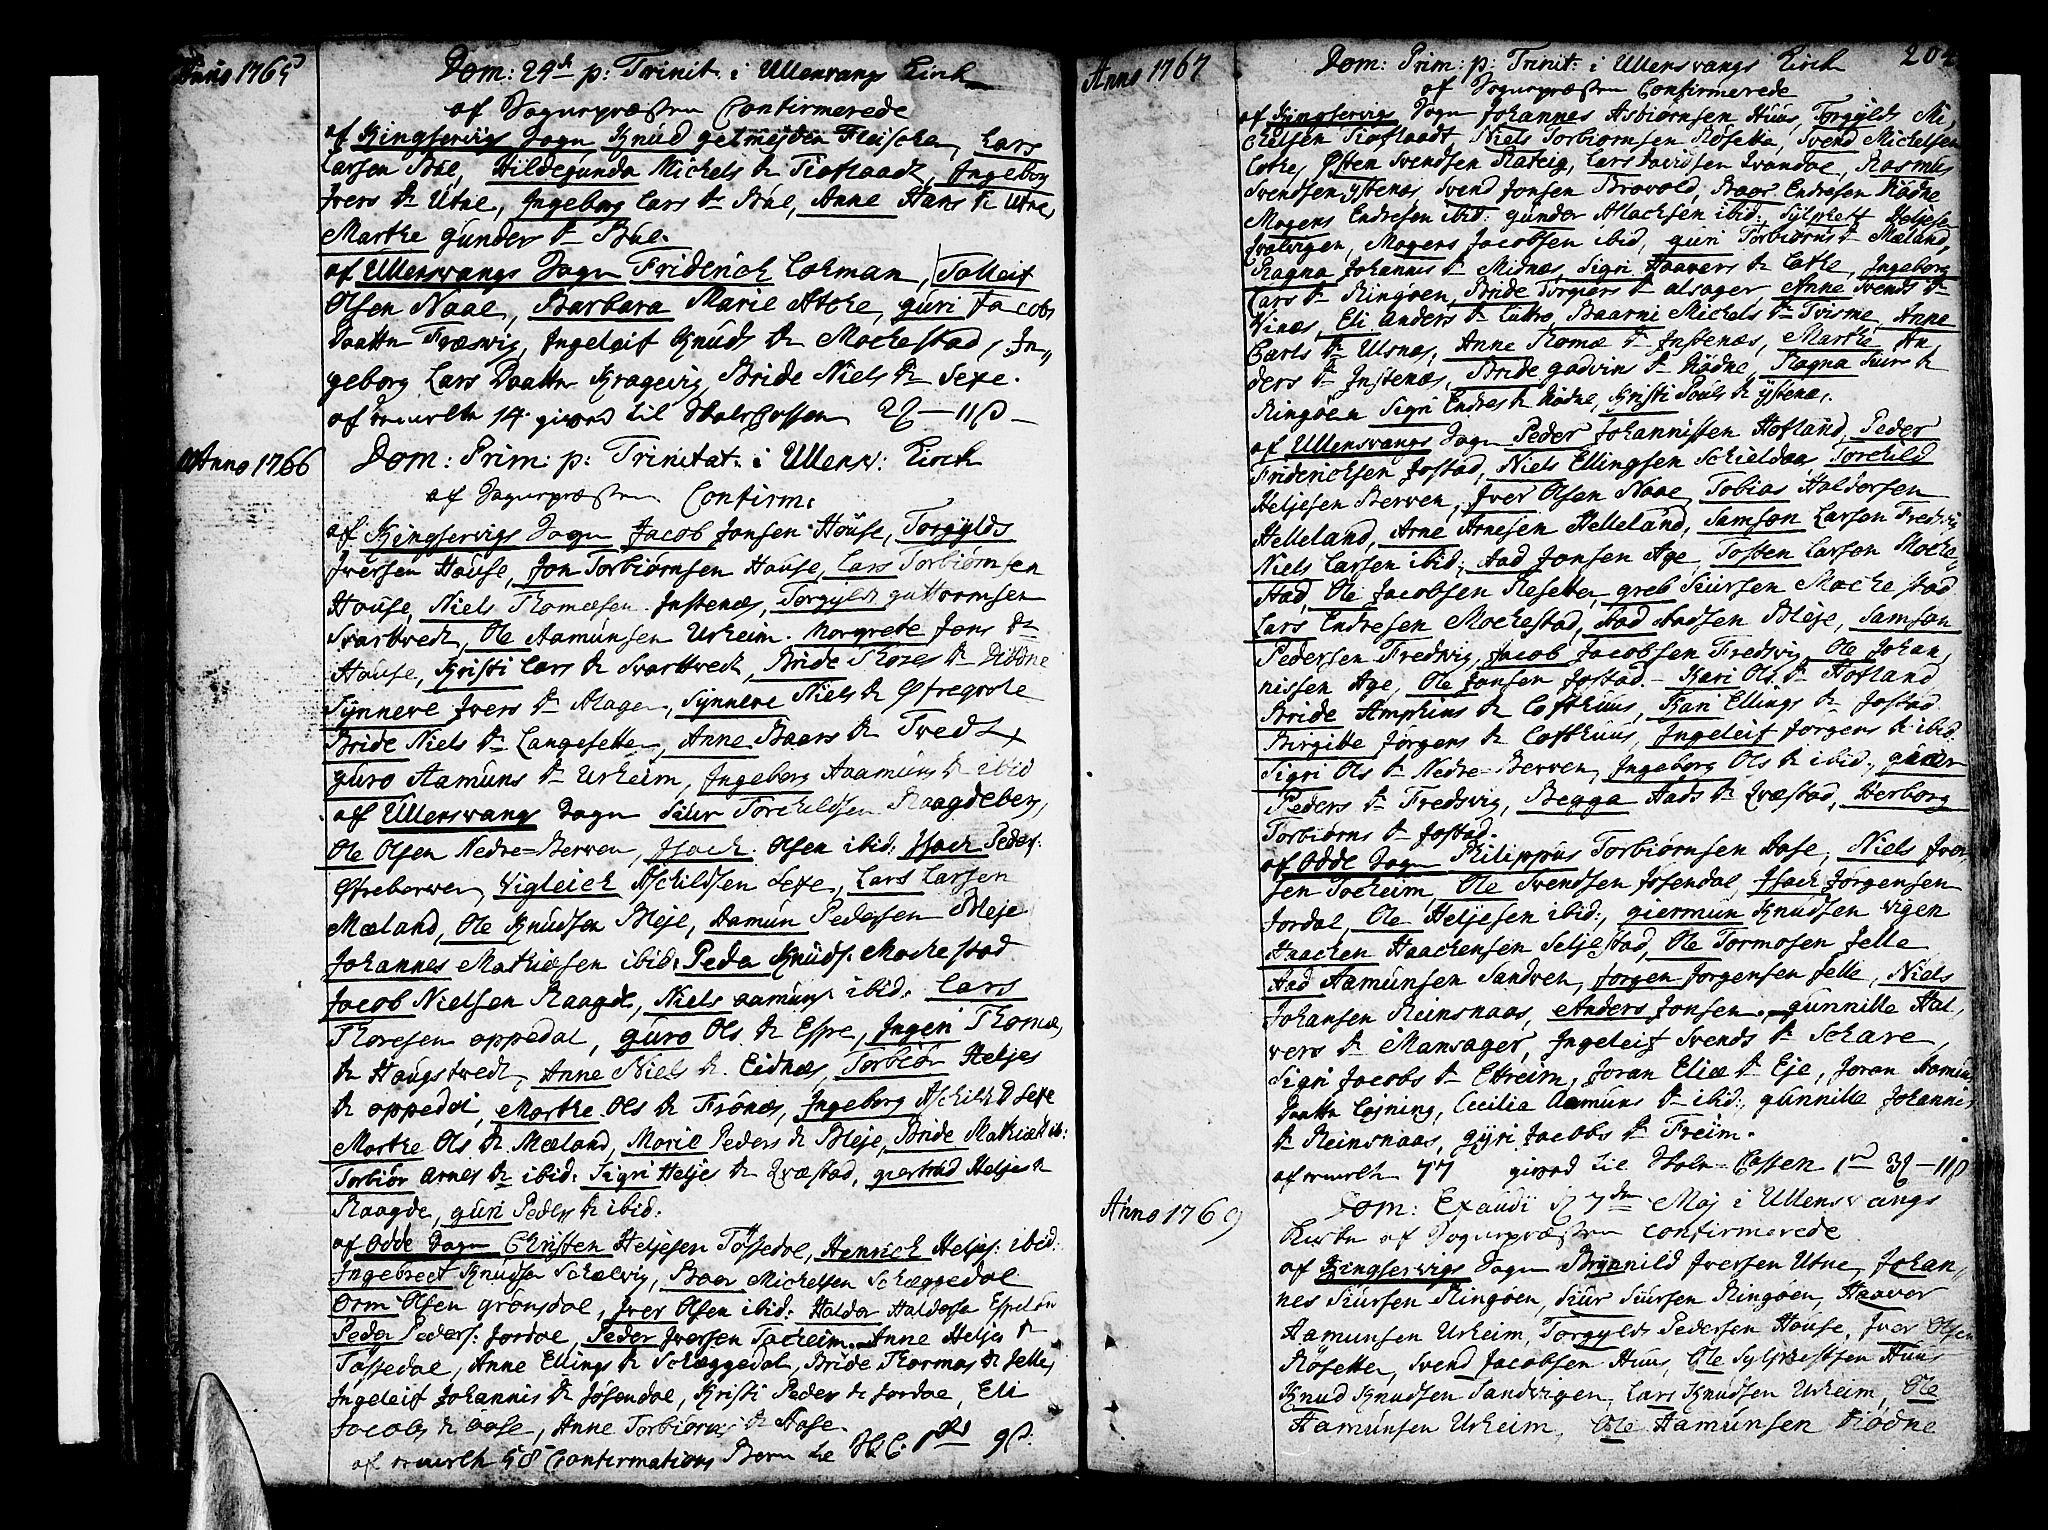 Anno 1765
Dom: 29de p: Trinit: i Ullensvangs Kirch
af Sognepræsten Confirmerede
af Kingservigs Sogn Knud gelmeyden Fleischer, Lars
Larsen Bue, Hildegunda Michels Dr Tioflaadt, Ingeborg
Ivers Dr Utne, Ingeborg Lars Dr Bue, Anne Hans Dr Utne,
Marthe Gunders Dr Bue.
af Ullensvangs Sogn Friderich Lohman, Tolleif
Olsen Naae, Barbara Marie Atche, Guri Jacobs
Daatter Fræsvig, Ingeleif Knuds Dr Mochestad, In-
geborg Lars Daatter Kragevig, Bride Niels Dr Sexe.
af 14 givet til
Anno 1766
Dom: Prim: p: Trinitat: i Ullensv: Kirch
af Sognepræsten Confirm:
af Kingservigs Sogn Jacob Jonsen House, Torgylds
Iversen House, Jon Torbiørnsen House, Lars Torbiørnsen
House, Niels Thomæsen Instenæs, Torgylds guttormsen
Svartvedt, Ole Aamunsen Urheim. Margrete Jons Dr
House, Kristi Lars Dr Svartvedt, Bride Thores Dr Diødne
Synneve Ivers Dr Alagen, Synneve Niels Dr Øfregrote
Bride Niels Dr Langesetter, Anne Baars Dr Tvedt,
guro Aamuns Dr Urheim, Ingeborg Aamuns Dr ibid
af Ullensvangs Sogn Siur Torchildsen Raagdeberg,
Ole Olsen Nedre-Berven, Isach Olsen ibid: Isach Peders:
Øfreberven, Vigleich Aschildsen Sexe, Lars Larsen
Mæland, Ole Knudsen Bleje, Aamun Pedersen Bleje
Johannes Mathiesen ibid: Peder Knuds: Mochestad
Jacob Nielsen Raagde, Niels Aamuns: ibid: Lars
Thoresen oppedal, guro Ols Dr Espe, Ingeri Thomæ
Dr Haugstvedt, Anne Niels Dr Eidnæs, Torbiør Heljes
Dr oppedal, Marthe Ols Dr Frönæs, Ingeborg Aschilds D Sexe
Marthe Ols Dr Mæland, Marie Peders Dr Bleje, Bride Mathiæ ib:
Torbiør Arnes Dr ibid: Sigri Helje Dr Qvæstad, giertrud Heljes Dr
Raagde, guri Peders Dr ibid.
af Odde Sogn Christen Heljesen Tøssedal, Henrich Heljes: ibid:
Ingebrect Knudsen Schælvig, Baar Michelsen Schæggedal
Orm Olsen grønsdal, Iver Olsen ibid: Haldor Haldorsen Espeløn
Peder Peders: Jordal, Peder Iversen Tocheim. Anne Helje Dr
Tøssedal, Anne Ellings Dr Schæggedal, Bride Thormos Dr Jelle,
Ingeleif Johannis Dr Jøsendal, Kristi Peder Dr Jordal, Eli
Jacobs Dr Aase, Anne Torbiørns Dr Aase.
af 58 Confirmations Børn
Anno 1767
204
Dom: Prim: p: Trinit: i Ullensvangs Kirch
af Sognepræsten Confirmerede
af Kingservigs Sogn Johannes Asbiørnsen Huus, Torgylds Mi-
chelsen Tioflaadt Niels Torbiørnsen Røsetter, Svend Michelsen
Lothe, Østen Svendsen Rateig, Lars Davidsen Qvandal, Rasmus
Svendsen ystenæs, Svend Jonsen Bravold, Baar Endresen Rødne
Mogens Endresen ibid: gunder Allachsen ibid:, Sylphest Heljesen
Qvalvigen, Mogens Jacobsen ibid, guri Torbiørns Dr Mæland,
Ragna Johannis Dr Midnæs, Sigri Haavers Dr Lothe, Ingeborg
Lars Dr Ringøen, Bride Torgiers Dr alsager Anne Svends Dr
Vinæs, Eli Anders Dr Luttro, Baarni Michels Dr Tvisme, Anne
Carls Dr Ulsnæs, Anne Thomæ Dr Instenæs, Marthe An-
ders Dr Instenæs, Bride gudvins Dr Rødne, Ragna Siurs Dr
Ringøen Sigri Endres Dr Rødne, Kristi Pouls Dr ystenæs.
af Ullensvangs Sogn Peder Johannissen Hofland, Peder
Friderichsen Jostad, Niels Ellingsen Schieldaas, Torchild
Heljesen Berven, Iver Olsen Naae, Tobias Haldorsen
Helleland, Arne Arnesen Helleland, Samson Larsen Fredvig
Niels Larsen ibid:, Aad Jonsen Age, Tosten Larson Moche-
stad, Ole Jacobsen Resetter, greb Siursen Mochestad
Lars Endresen Mochestad, Aad Aadsen Bleje, Samson
Pedersen Fredvig, Jacob Jacobsen Fredvig, Ole Johan-
nissen Age, Ole Jonsen Jostad. - Kari Ols Dr Hofland
Bride Amphins Dr Lofthuus, Kari Ellings Dr Jostad
Birgitte Jørgens Dr Lofthuus, Ingeleif Jørgens Dr ibid:
Sigri Ols Dr Nedre-Berven, Ingeborg Ols Dr ibid:,
Peders Dr Fredsvig, Begga Aads Dr Qvæstad, Herborg
Torbiørns Dr Jostad.
af Odde Sogn Philippus Torbiørnsen Aase, Niels Iver-
sen Tocheim, Ole Svendsen Jøsendal, Isach Jørgensen
Jordal, Ole Heljesen ibid:, giermun Knudsen Vigen
Haachen Haachensen Seljestad, Ole Tormosen Jelle
Aad Aamunsen Sandven, Jørgen Jørgensen Jelle, Niels
Johansen Reinsnaas, Anders Jonsen. gunnille Hal-
vers Dr Mansager, Ingeleif Svends Dr Schare,
Sigri Jacobs Dr Eitreim, Joran Eliæ Dr Eje, Joran Aamun
Daatter Løjning, Cecilia Aamuns Dr ibid:, gunnille Johannis
Dr Reinsnaas, gyri Jacobs Dr Freim.
af 77 givet til
Anno 1769
Dom: Exaudi d 7de Maj i Ullensvangs
Kirke af Sognepræsten confirmerede
af Kingservigs Sogn Brynnild Iversen Utne, Johan-
nes Siursen Ringøen, Siur Siursen Ringøen, Haaver
Aamunsen Urheim, Torgylds Pedersen House, Iver Olsen
Røsetter, Svend Jacobsen Huus, Ole Sylphestsen Huus
Knud Knudsen Sandvigen, Lars Knudsen Urheim, Ole
Aamunsen Urheim, Ole Aamunsen Diødne